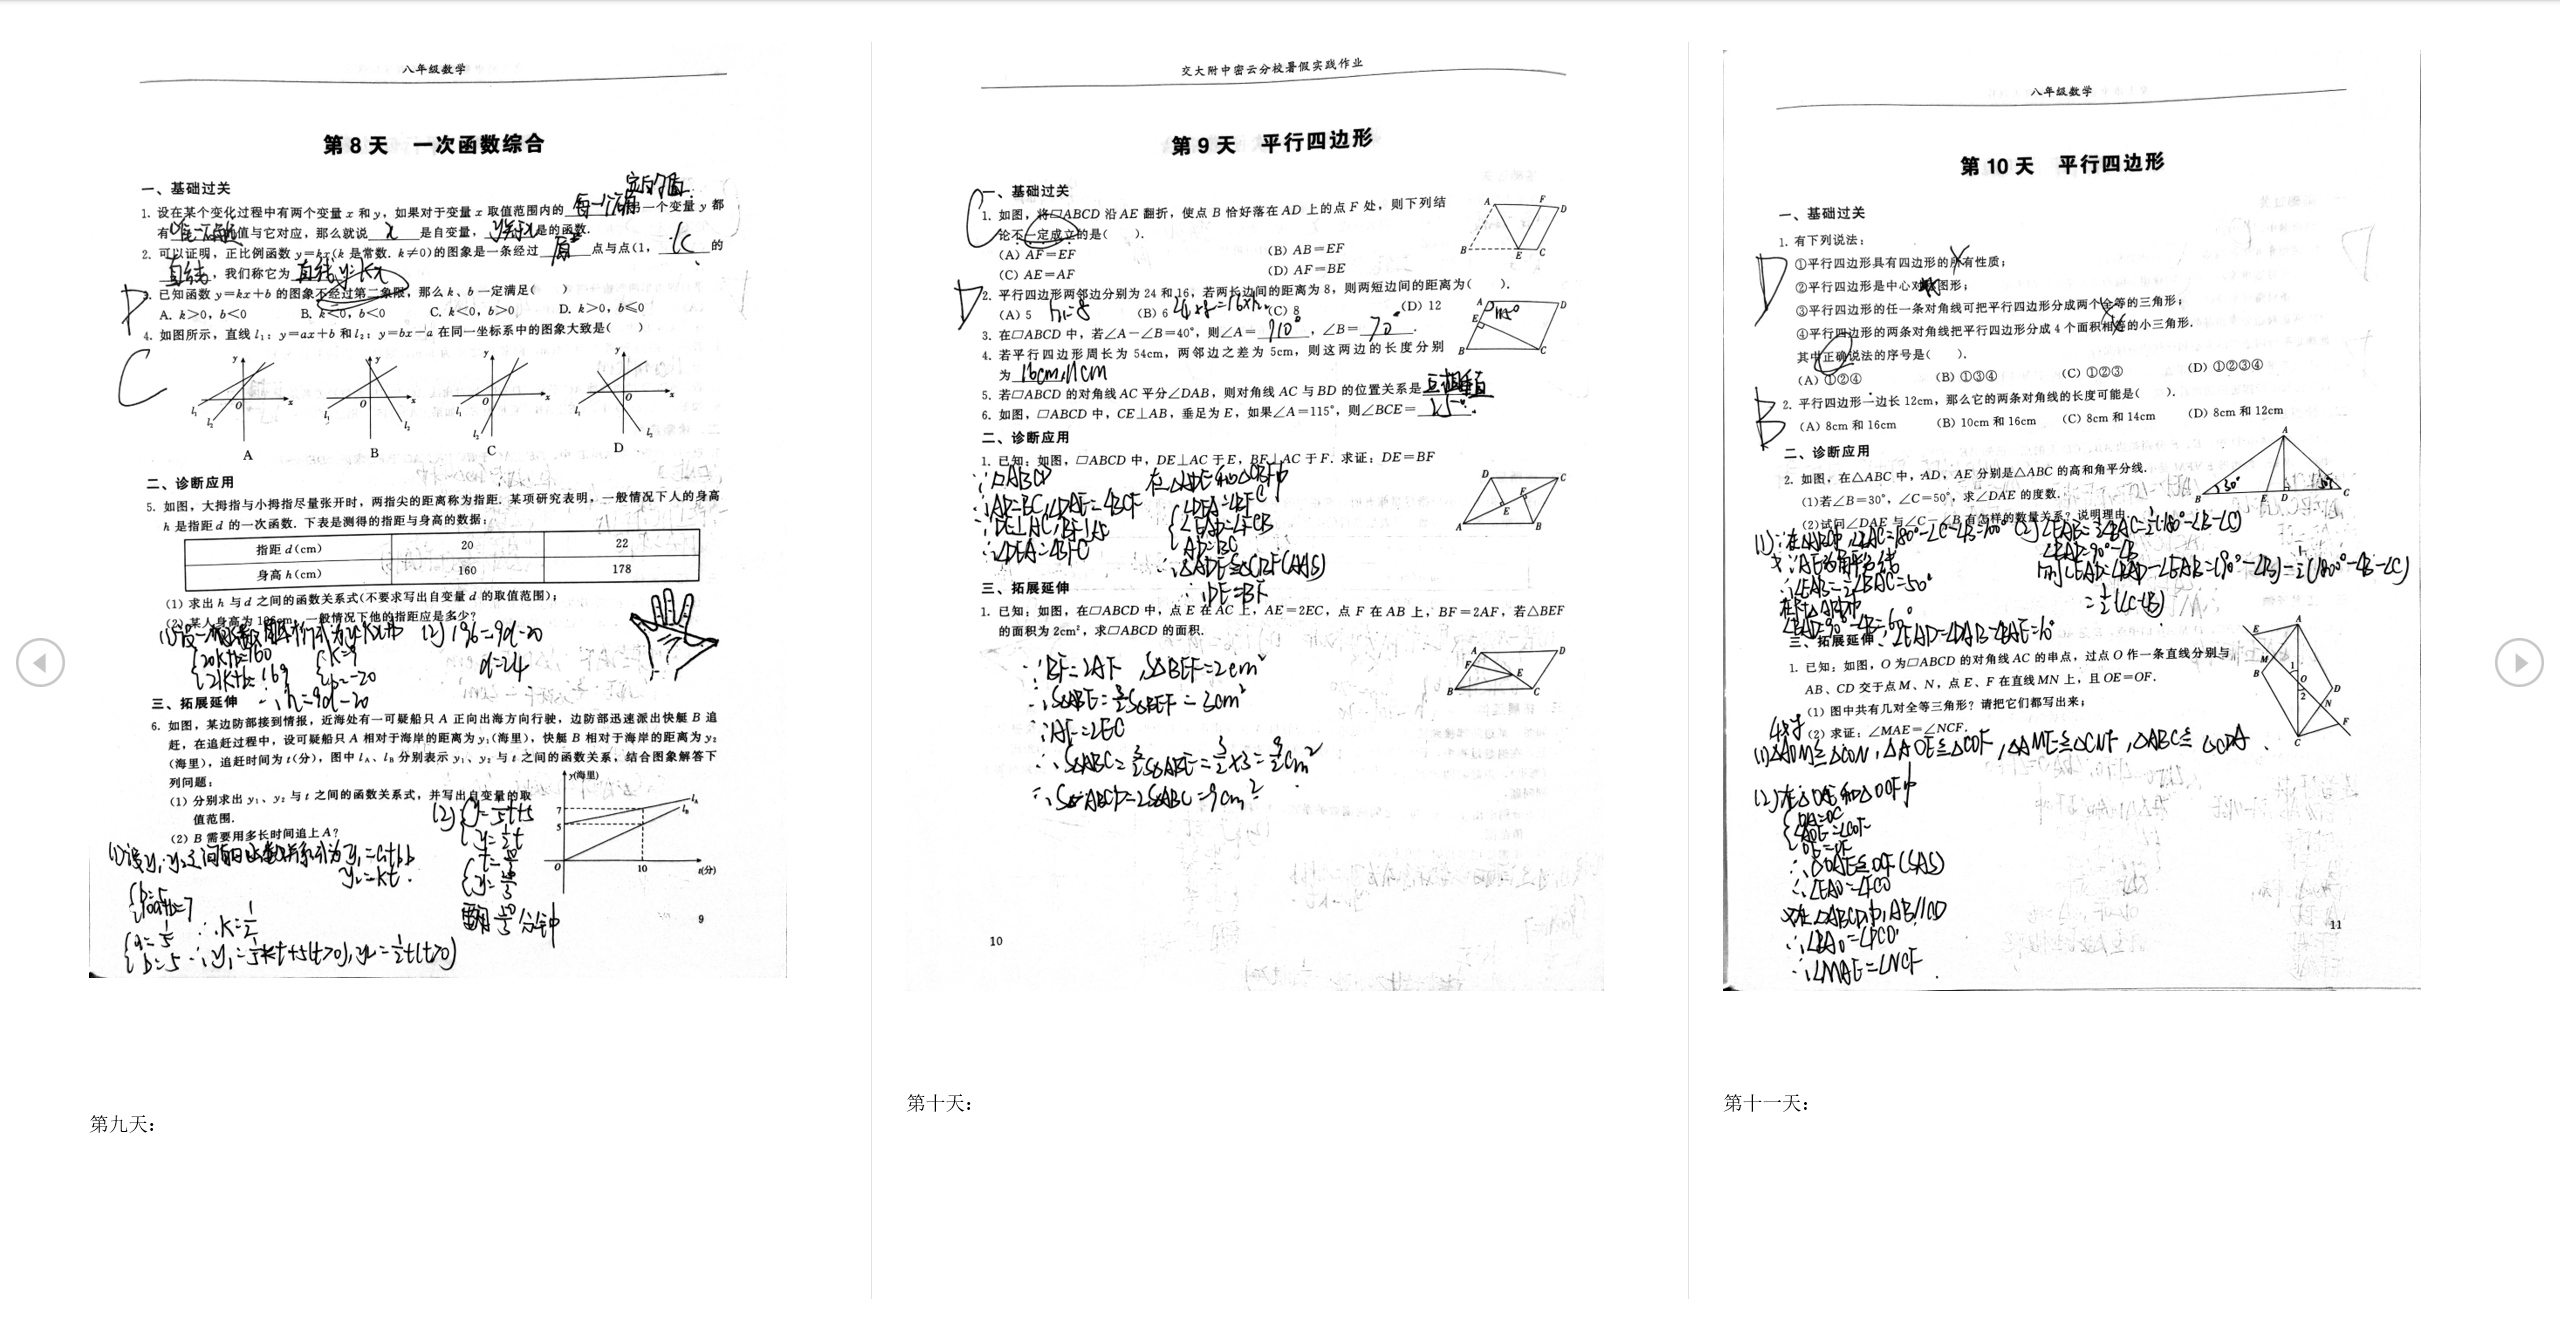 八年级数学
第 8 天 一次函数综合
一、基础过关
1. 设在某个变化过程中有两个变量 x 和 y，如果对于变量 x 取值范围内的 每一个确定的值 另一个变量 y 都
有 唯一确定 值与它对应，那么就说 x 是自变量， y是x 是的函数．
2. 可以证明，正比例函数 y＝kx(k 是常数．k≠0)的图象是一条经过 原 点与点(1， k 的
直线，我们称它为 直线y=kx
3. 已知函数 y＝kx＋b 的图象不经过第二象限，那么 k、b 一定满足( )
D
A. k＞0，b＜0 B. k＜0，b＜0 C. k＜0，b＞0 D. k＞0，b≤0
4. 如图所示，直线 l₁：y＝ax＋b 和 l₂：y＝bx－a 在同一坐标系中的图象大致是( )
C
A B C D
二、诊断应用
5. 如图，大拇指与小拇指尽量张开时，两指尖的距离称为指距．某项研究表明，一般情况下人的身高
h 是指距 d 的一次函数．下表是测得的指距与身高的数据：
指距 d(cm) 20 22
身高 h(cm) 160 178
(1) 求出 h 与 d 之间的函数关系式(不要求写出自变量 d 的取值范围)；
(2) 某人身高为 196cm，一般情况下他的指距应是多少？
(2) 196=9d-20
20k+b=160 k=9
21k+b=169 b=-20
d=24
∴h=9d-20
三、拓展延伸
6. 如图，某边防部接到情报，近海处有一可疑船只 A 正向出海方向行驶，边防部迅速派出快艇 B 追
赶，在追赶过程中，设可疑船只 A 相对于海岸的距离为 y₁(海里)，快艇 B 相对于海岸的距离为 y₂
(海里)，追赶时间为 t(分)，图中 lA、lB 分别表示 y₁、y₂ 与 t 之间的函数关系，结合图象解答下
列问题：
(1) 分别求出 y₁、y₂ 与 t 之间的函数关系式，并写出自变量的取
值范围．
(2) B 需要用多长时间追上 A？
y(海里)
7
5
O 10 t(分)
lA
lB
y₂=kt
b=5
10a+b=7
∴k=1/2
a=1/5
b=5 ∴y₁=1/5t+5(t>0),y₂=1/2t(t>0)
(2) y=1/5t+5
y=1/2t
分钟
9
第九天：
交大附中密云分校暑假实践作业
第 9 天 平行四边形
一、基础过关
1. 如图，将▱ABCD 沿 AE 翻折，使点 B 恰好落在 AD 上的点 F 处，则下列结
论不一定成立的是( )．
C
(A) AF＝EF (B) AB＝EF
(C) AE＝AF (D) AF＝BE
2. 平行四边形两邻边分别为 24 和 16，若两长边间的距离为 8，则两短边间的距离为( )．
D
(A) 5 (B) 6 (C) 8 (D) 12
3. 在▱ABCD 中，若∠A－∠B＝40°，则∠A＝ 110° ，∠B＝ 70° ．
4. 若平行四边形周长为 54cm，两邻边之差为 5cm，则这两边的长度分别
为 16cm,11cm
5. 若▱ABCD 的对角线 AC 平分∠DAB，则对角线 AC 与 BD 的位置关系是 互相垂直
6. 如图，▱ABCD 中，CE⊥AB，垂足为 E，如果∠A＝115°，则∠BCE＝ 25° ．
二、诊断应用
1. 已知：如图，▱ABCD 中，DE⊥AC 于 E，BF⊥AC 于 F．求证：DE＝BF
∵▱ABCD
∴AD=BC,∠DAE=∠BCF
∵DE⊥AC,BF⊥AC
∴∠DEA=∠BFC
在△ADE和△CBF中
∠DEA=∠BFC
∠EAD=∠FCB
AD=BC
∴△ADE≌△CBF(AAS)
∴DE=BF
三、拓展延伸
1. 已知：如图，在▱ABCD 中，点 E 在 AC 上，AE＝2EC，点 F 在 AB 上，BF＝2AF，若△BEF
的面积为 2cm²，求▱ABCD 的面积．
∵BF=2AF ,S△BEF=2cm²
∴S△ABE=3/2S△BEF=3cm²
∵AE=2EC
∴S△ABC=3/2S△ABE=3/2×3=9/2cm²
∴S▱ABCD=2S△ABC=9cm²
10
第十天：
八年级数学
第 10 天 平行四边形
一、基础过关
1. 有下列说法：
①平行四边形具有四边形的所有性质；
②平行四边形是中心对称图形；
③平行四边形的任一条对角线可把平行四边形分成两个全等的三角形；
④平行四边形的两条对角线把平行四边形分成 4 个面积相等的小三角形．
D
其中正确说法的序号是( )．
(A) ①②④ (B) ①③④ (C) ①②③ (D) ①②③④
2. 平行四边形一边长 12cm，那么它的两条对角线的长度可能是( )．
B
(A) 8cm 和 16cm (B) 10cm 和 16cm (C) 8cm 和 14cm (D) 8cm 和 12cm
二、诊断应用
2. 如图，在△ABC 中，AD，AE 分别是△ABC 的高和角平分线．
(1)若∠B＝30°，∠C＝50°，求∠DAE 的度数．
(2)试问∠DAE 与∠C－∠B 有怎样的数量关系？说明理由．
(1)∵在△ABC中,∠BAC=180°-∠C-∠B=100°
又∵AE为角平分线
∴∠EAB=1/2∠BAC=50°
在Rt△ABD中
∠BAD=90°-∠B=60°
∴∠EAD=∠DAB-∠BAE=10°
(2)∠EAB=1/2∠BAC=1/2(180°-∠B-∠C)
∠BAD=90°-∠B
则∠EAD=∠BAD-∠EAB=(90°-∠B)-1/2(180°-∠B-∠C)
=1/2(∠C-∠B)
三、拓展延伸
1. 已知：如图，O 为▱ABCD 的对角线 AC 的串点，过点 O 作一条直线分别与
AB、CD 交于点 M、N，点 E、F 在直线 MN 上，且 OE＝OF．
(1) 图中共有几对全等三角形？请把它们都写出来；
4对
(2) 求证：∠MAE＝∠NCF．
(1)△AOM≌△CON,△AOE≌△COF,△AME≌△CNF,△ABC≌△CDA.
(2)在△OAE和△OCF中
OA=OC
∠AOE=∠COF
OE=OF
∴△OAE≌OCF(SAS)
∴∠EAO=∠FCO
又在▱ABCD中,AB//CD
∴∠BAO=∠DCO
∴∠MAE=∠NCF
11
第十一天：